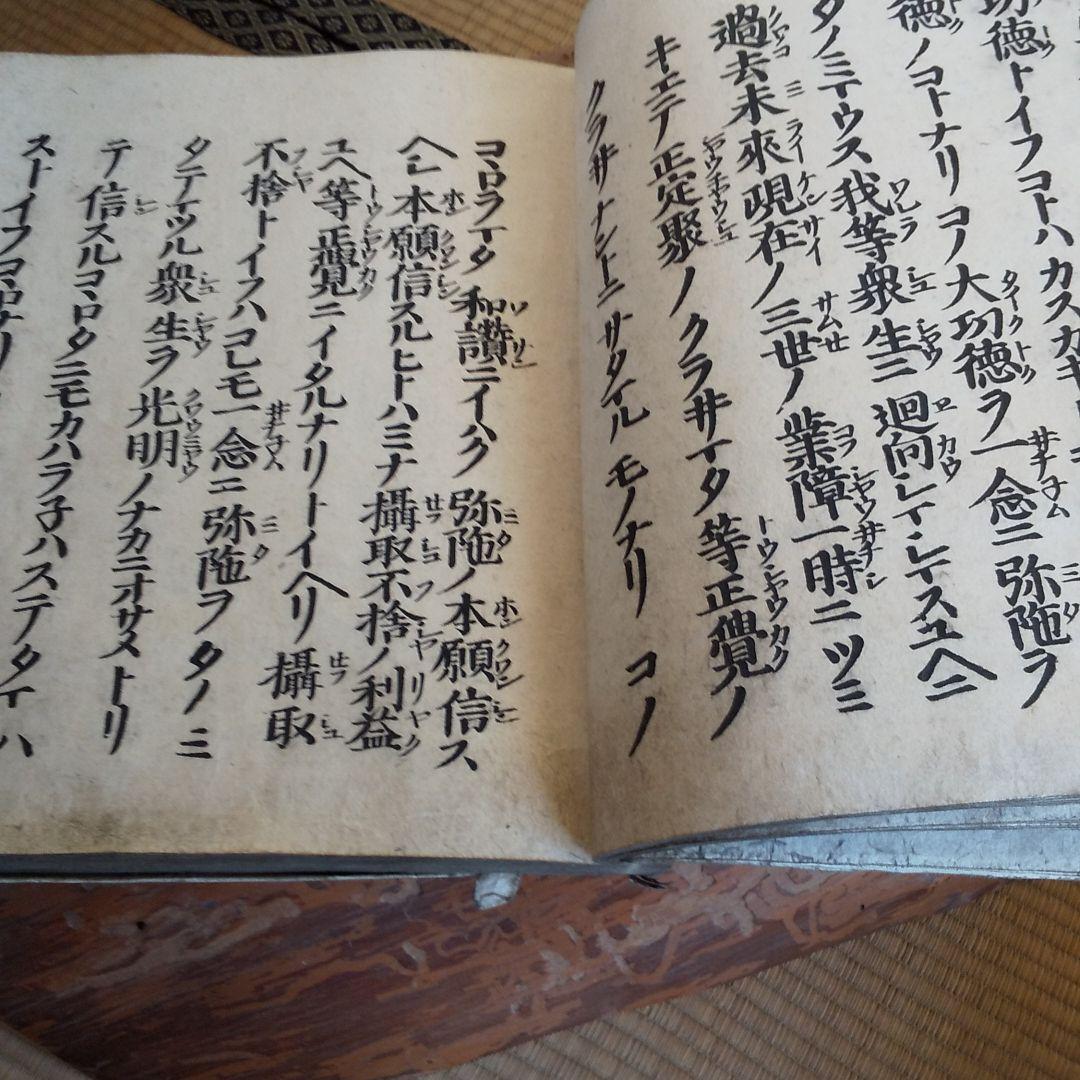 功徳トイフコトハカスカキ
徳ノコトナリコノ大功徳ラ一念ニ弥陁ヲ
タノミマウス我等衆生ニ廻向シマシマスユヘニ
過去未來現在ノ三世ノ業障一時ニツミ
キエテ正定聚ノクラ井マタ等正覺ノ
クラ井ナントニサタマルモノナリ コノ
コヽロヲマタ和讃ニイハク 弥陁ノ本願信ス
ヘシ本願信スルヒトハミナ攝取不捨ノ利益
ユヘ等正覺ニイタルナリトイヘリ 攝取
不捨トイフハコレモ一念ニ弥陁ヲタノミ
タテマツル衆生ヲ光明ノナカニオサメトリ
テ信スルコヽロタニモカハラ子ハステタマハ
ストイフコヽロナリ